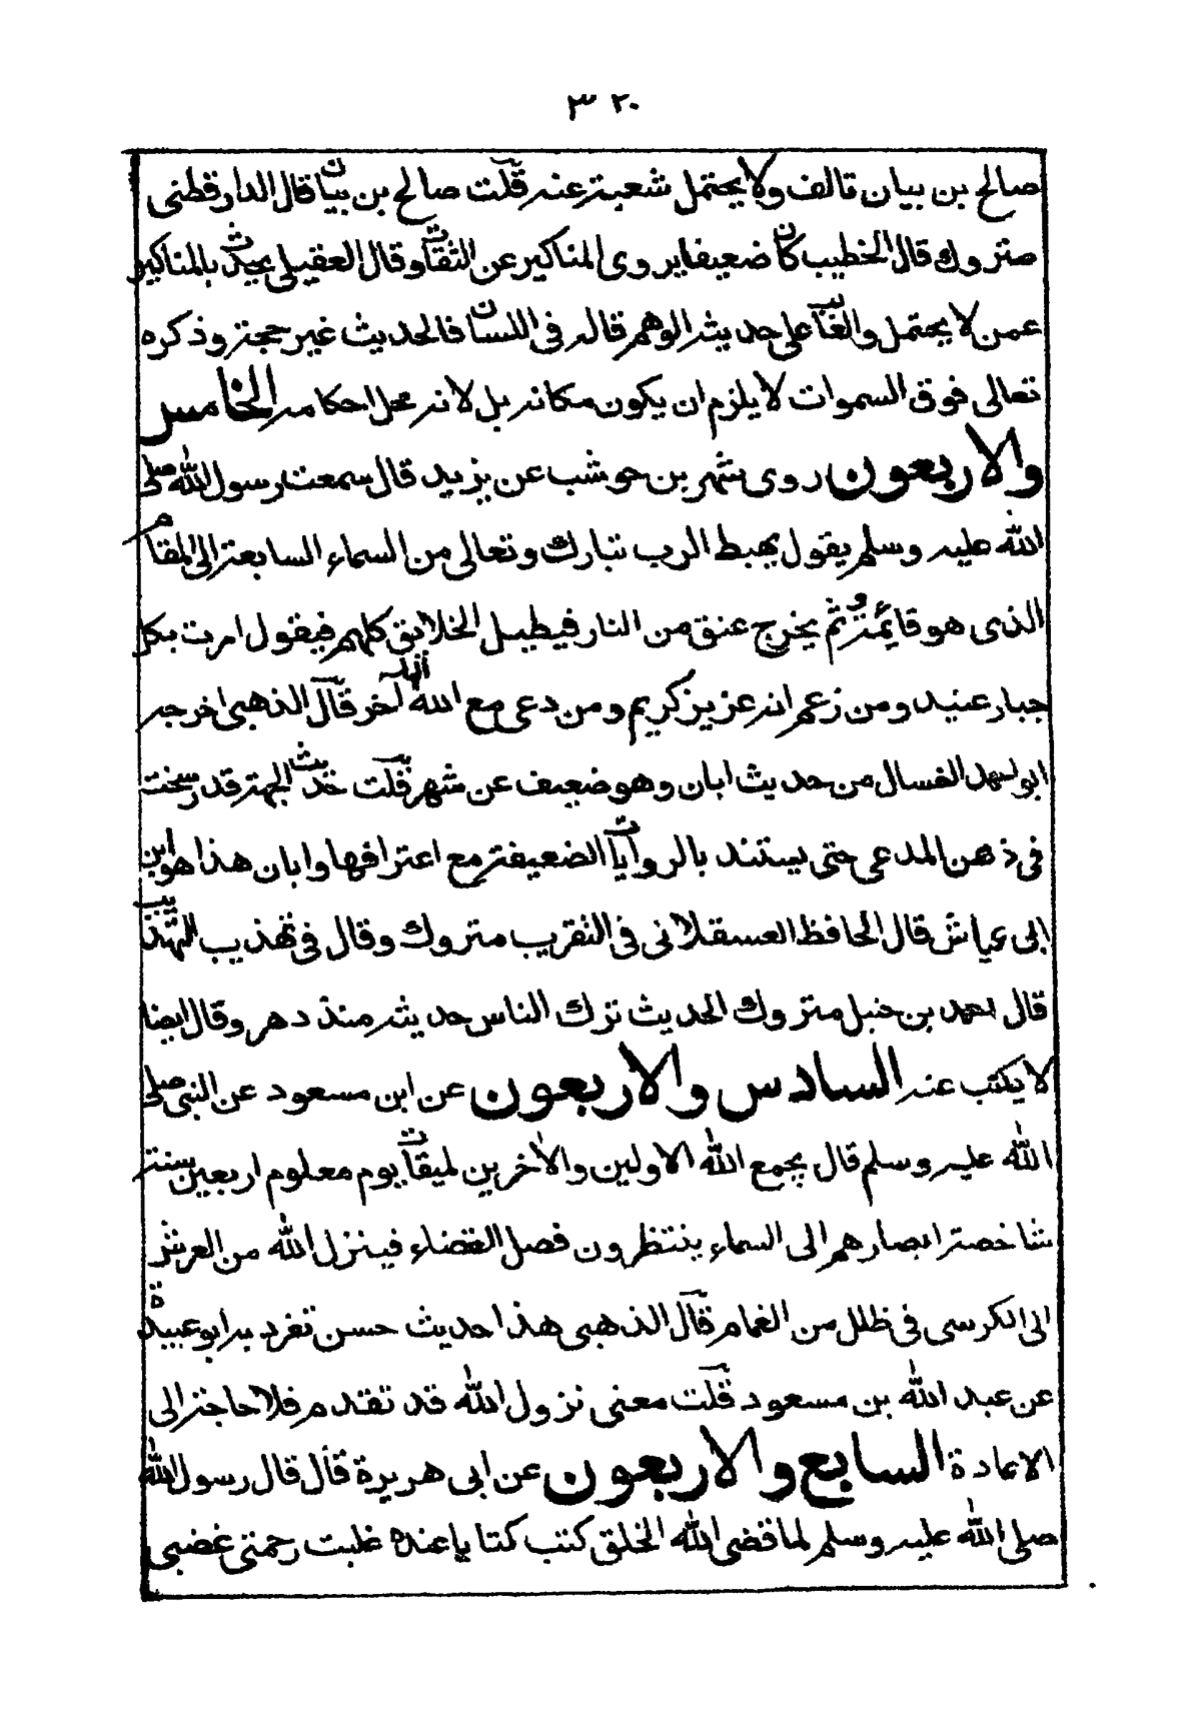 ٣٢٠
صالح بن بيان تالف ولا يحتمل شعبة عنه قلت صالح بن بيان قال الدارقطنى
متروك قال الخطيب كان ضعيفا يروى المناكير عن الثقات وقال العقيلى يحدث بالمناكير
عمن لا يحتمل والغالب على حديثه الوهم قاله فى اللسان فالحديث غير حجة وذكره
تعالى فوق السموات لا يلزم ان يكون مكانه بل لانه محل احكامه الخامس
والاربعون روى شهر بن حوشب عن يزيد قال سمعت رسول الله صلى
الله عليه وسلم يقول يهبط الرب تبارك وتعالى من السماء السابعة الى المقام
الذى هو قائمة ثم يخرج عنق من النار فيطيل الخلايق كلهم فيقول امرت بكل
جبار عنيد ومن زعم انه عزيز كريم ومن دعى مع الله الها آخر قال الذهبى اخرجه
ابو العسال من حديث ابان وهو ضعيف عن شهر قلت حديث الجهة قد رسخت
فى ذهن المدعى حتى يستند بالروايات الضعيفة مع اعترافها وابان هذا هو ابن
ابى عياش قال الحافظ العسقلانى فى التقريب متروك وقال فى تهذيب التهذيب
قال احمد بن حنبل متروك الحديث ترك الناس حديثه منذ دهر وقال ايضا
لا يكتب عنه السادس والاربعون عن ابن مسعود عن النبى صلى
الله عليه وسلم قال يجمع الله الاولين والآخرين لميقات يوم معلوم اربعين سنة
شاخصة ابصارهم الى السماء ينتظرون فصل القضاء فينزل الله من العرش
الى الكرسى فى ظلل من الغمام قال الذهبى هذا حديث حسن تفرد به ابو عبيدة
عن عبد الله بن مسعود قلت معنى نزول الله قد تقدم فلا حاجة الى
الاعادة السابع والاربعون عن ابى هريرة قال قال رسول الله
صلى الله عليه وسلم لما قضى الله الخلق كتب كتابا عنده غلبت رحمتى غضبى